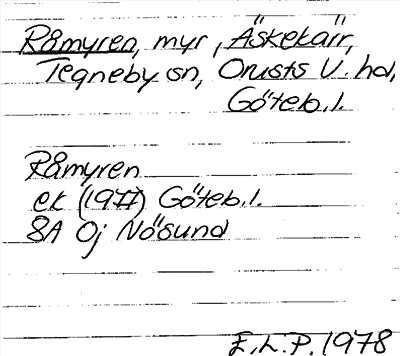 Råmyren, myr, Äskekärr,
Tegneby sn, Orusts V. hd,
Göteb. l.
Råmyren
ek (1977) Göteb. l.
8A 0j Nösund
E.L.P. 1978